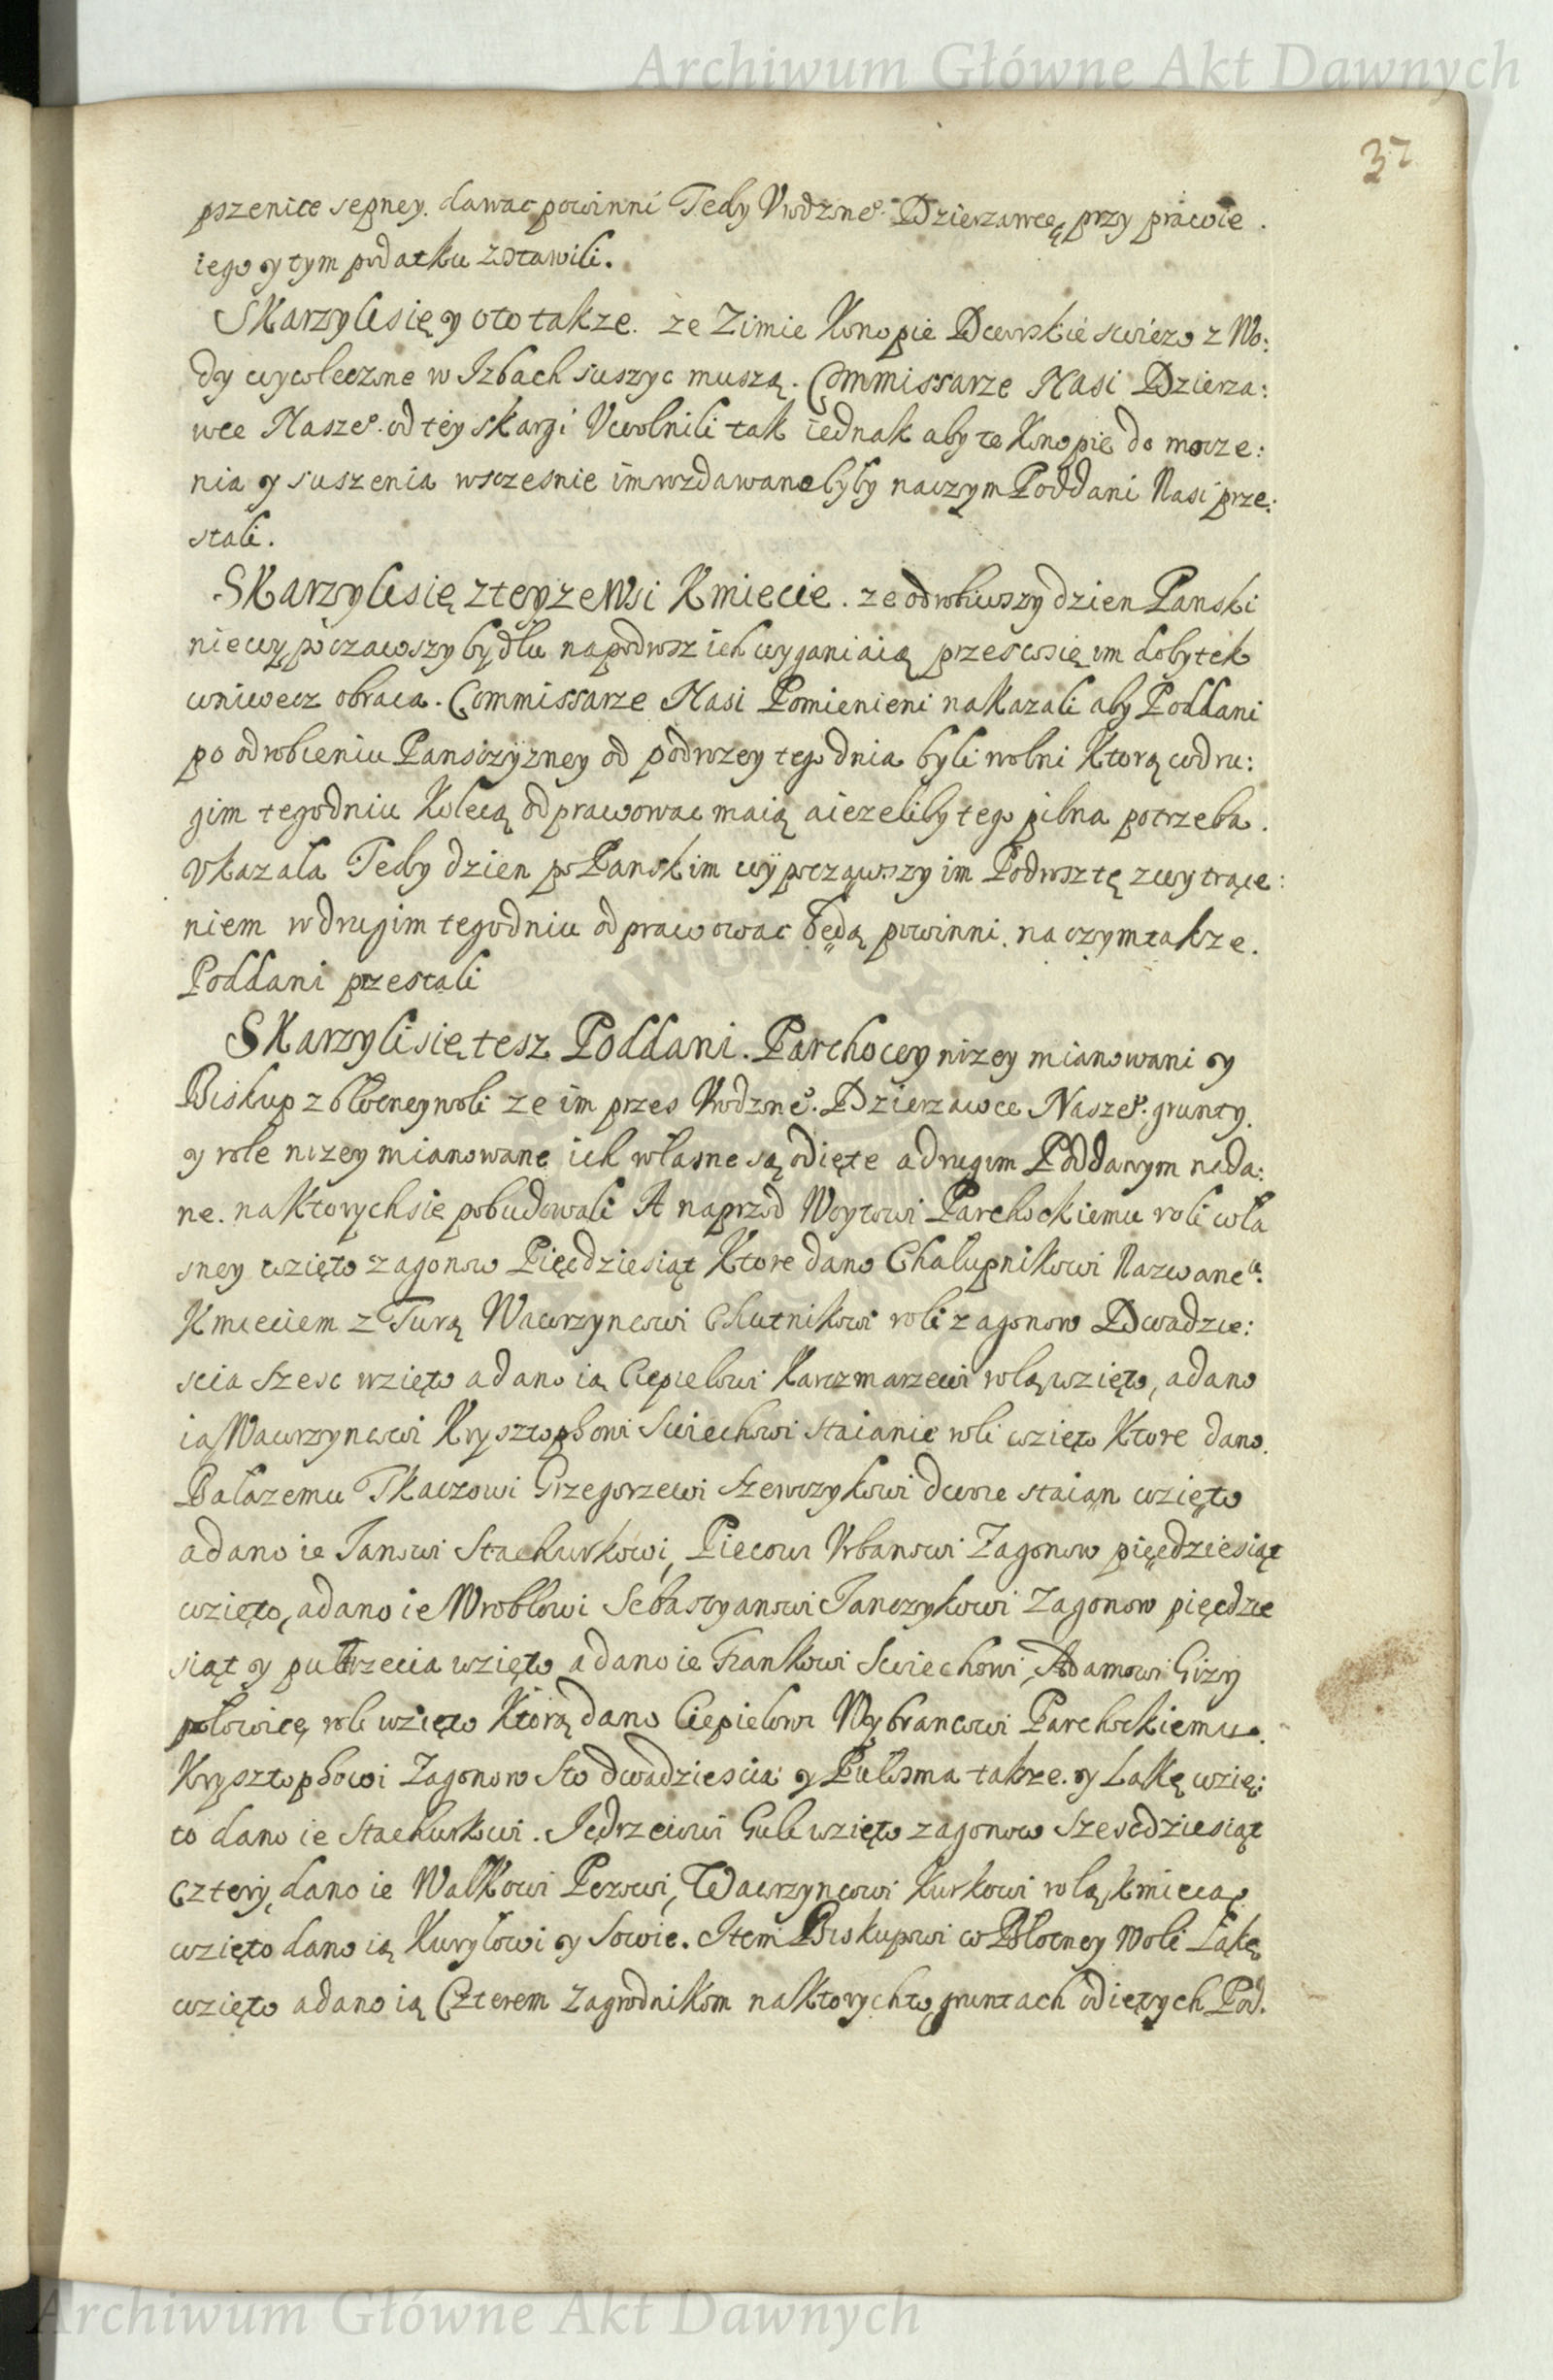 Archiwum Główne Akt Dawnych
37
pszenice sepney. dawac powinni Tedy Vrodzone°. Dzierzawcę przy prawie.
iego y tym podatku zostawili.
Skarzyli się y oto takze. ze Zimie Konopie Dworskie swiezo z Wo:
dy wywleczone w Izbach suszyc muszą. Commissarze Nasi Dzierza:
wce Nasze°. od tey skargi Vwolnili tak iednak aby te Konopie do mocze:
nia y suszenia wszesnie im wzdawane byly na czym Poddani Nasi prze:
stali.
Skarzyli się z teyze Wsi Kmiecie. ze odrobiwszy dzien Panski
nie wypoczawszy bydlu na podwoz ich wyganiaią przes co się im dobytek
wniwecz obraca. Commissarze Nasi Pomienieni nakazali aby Poddani
po odrobieniu Pansczyzney od podwozey tego dnia byli wolni Ktorą w dru:
gim tegodniu Kolecą odprawowac maią a iezeliby tego pilna potrzeba.
Vkazala Tedy dzien po Panskim wypocząwszy im Podwosztę z wytrące:
niem w drugim tegodniu odprawowac będą powinni. na czym takze.
Poddani przestali
Skarzyli się tesz Poddani. Parchocey nizey mianowani y
Biskup z Błotney woli ze im przes Vrodzone°. Dzierzawce Nasze°. grunty.
y role nizey mianowane ich własne są odięte a drugim Poddanym nada:
ne. na Ktorych sie pobudowali A naprzod Woytowi Parchockiemu roli wła
sney wzięto zagonow Pięcdziesiąt Ktore dano Chalupnikowi Nazwane°.
Kmieciem z Turą Wawrzyncowi Chutnikowi roli zagonow Dwadzie:
scia szesc wzięto a dano ią Ciepielowi Karczmarzewi rolą wzięto, a dano
ią Wawrzyncowi Krysztophowi Swiechowi staianie roli wzięto Ktore dano.
Balazemu Tkaczowi Grzegorzewi Szewczykowi dwoie staian wzięto
a dano ie Janowi Stachurkowi, Piecowi Vrbanowi Zagonow pięcdziesiąt
wzięto, a dano ie Wroblowi Sebastyanowi Janczykowi Zagonow pięcdzie
siąt y pułtrzecia wzięto a dano ie Frankowi Swiechowi, Adamowi Gizy
połowicę roli wzięto Ktorą dano Ciepielowi Wybrancowi Parchockiemu.
Krysztophowi Zagonow Sto dwadziescia y Pułosma takze. y Lakę wzię:
to dano ie Stachurkowi. Jędrzeiowi Guli wzięto zagonow szescdziesiąt
Cztery, dano ie Walkowi Pezowi, Wawrzyncowi Kurkowi rolą kmiecą
wzięto dano ią Kuryłowi y Sowie. Item Biskupowi w Błotney Woli Łąkę
wzięto a dano ią Czterem Zagrodnikom na Ktorych to gruntach odiętych Pod.
Archiwum Główne Akt Dawnych